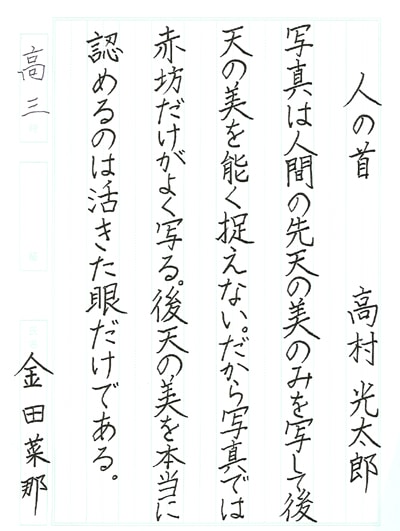 人の首 高村光太郎
写真は人間の先天の美のみを写して後
天の美を能く捉えない。だから写真では
赤坊だけがよく写る。後天の美を本当に
認めるのは活きた眼だけである。
高三 金田菜那